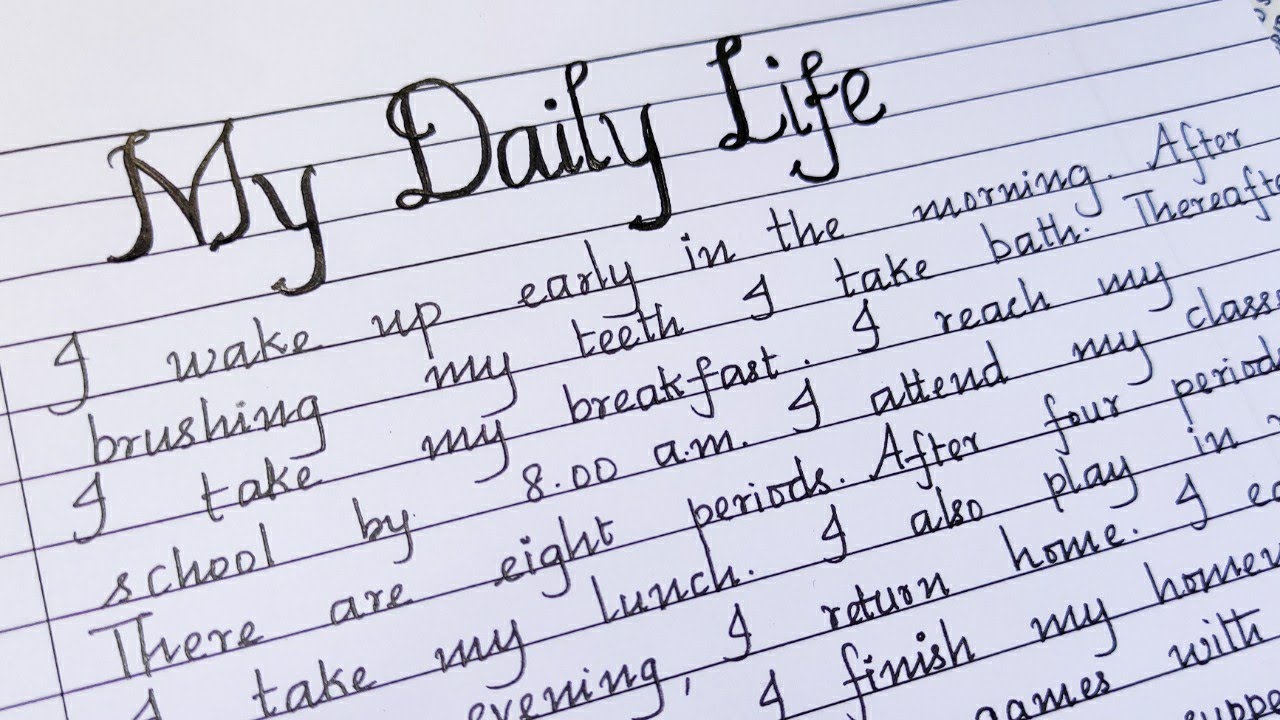 My Daily Life
I wake up early in the morning. After
brushing my teeth I take bath. Thereafte
I take my breakfast. I reach my
school by 8.00 a.m. I attend my class
There are eight periods. After four periods
I take my lunch. I also play in
evening, I return home. I
I finish my
games with